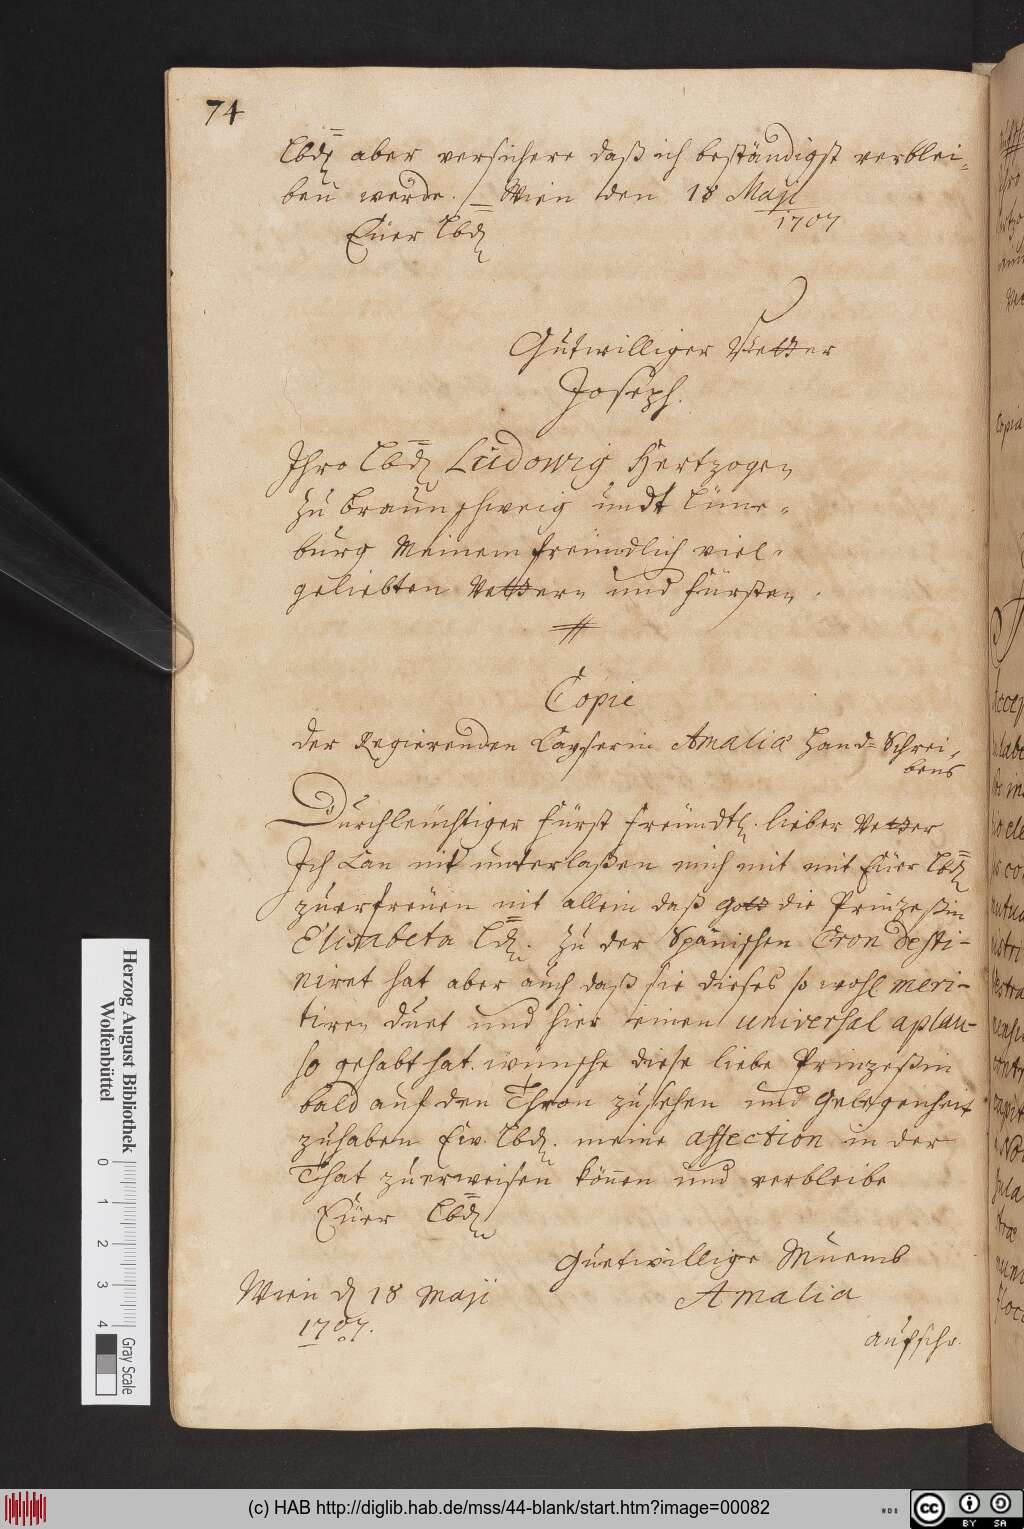 74
Lbd. aber versichere daß ich beständigst verblei-
ben werde. Wien den 18 Maji
1707
Euer Lbd.
Gutwilliger Vetter
Joseph.
Ihro Lbd. Ludowig Hertzogen
zu Braunschweig undt Lüne-
burg Meinem freündlich viel-
geliebten Vettern und Fürsten.
Copie
der Regierenden Cayserin Amaliæ Hand-Schrei-
bens
Durchleüchtiger Fürst freündtl. lieber Vetter
Ich Can nit unterlaßen mich mit Euer Lbd.
zuerfreüen nit allein daß Gott die Prinzeßin
Elisabeta Ld. zu der Spänischen Cron desti-
niret hat aber auch daß sie dieses so wohl meri-
tiren duet und hier einen universal aplau-
so gehabt hat. wünsche diese liebe Prinzeßin
bald auf den Thron zusehen und Gelegenheit
zuhaben Ew. Lbd. meine affection in der
That zuerweisen können und verbleibe
Euer Lbd.
Guetwillige Muemb
Wien d. 18 Maji
Amalia
1707.
aufschr.
Herzog August Bibliothek
Wolfenbüttel
0 1 2 3 4
Gray Scale
(c) HAB http://diglib.hab.de/mss/44-blank/start.htm?image=00082
WDB
cc BY SA